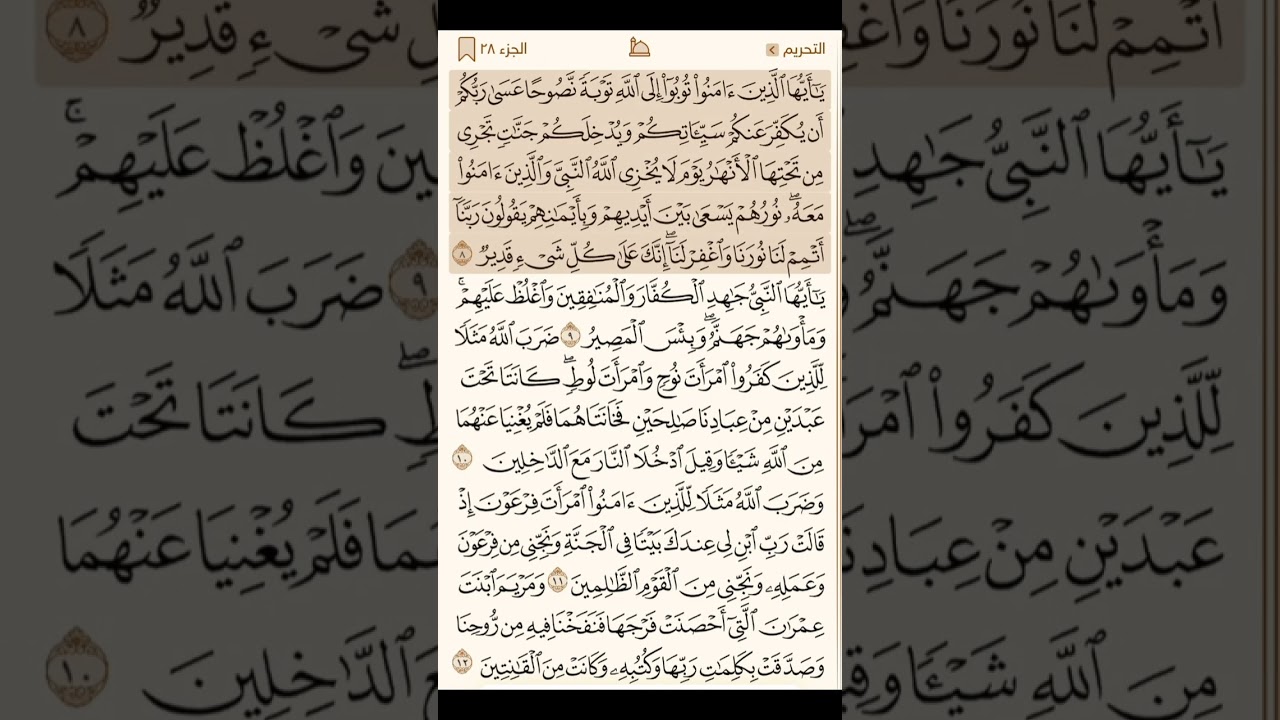 التحريم
الجزء ٢٨
يَـٰٓأَيُّهَا ٱلَّذِينَ ءَامَنُوا۟ تُوبُوٓا۟ إِلَى ٱللَّهِ تَوْبَةً نَّصُوحًا عَسَىٰ رَبُّكُمْ
أَن يُكَفِّرَ عَنكُمْ سَيِّـَٔاتِكُمْ وَيُدْخِلَكُمْ جَنَّـٰتٍ تَجْرِى
مِن تَحْتِهَا ٱلْأَنْهَـٰرُ يَوْمَ لَا يُخْزِى ٱللَّهُ ٱلنَّبِىَّ وَٱلَّذِينَ ءَامَنُوا۟
مَعَهُۥ ۖ نُورُهُمْ يَسْعَىٰ بَيْنَ أَيْدِيهِمْ وَبِأَيْمَـٰنِهِمْ يَقُولُونَ رَبَّنَآ
أَتْمِمْ لَنَا نُورَنَا وَٱغْفِرْ لَنَآ ۖ إِنَّكَ عَلَىٰ كُلِّ شَىْءٍ قَدِيرٌ ٨
يَـٰٓأَيُّهَا ٱلنَّبِىُّ جَـٰهِدِ ٱلْكُفَّارَ وَٱلْمُنَـٰفِقِينَ وَٱغْلُظْ عَلَيْهِمْ ۚ
وَمَأْوَىٰهُمْ جَهَنَّمُ ۖ وَبِئْسَ ٱلْمَصِيرُ ٩ ضَرَبَ ٱللَّهُ مَثَلًا
لِّلَّذِينَ كَفَرُوا۟ ٱمْرَأَتَ نُوحٍ وَٱمْرَأَتَ لُوطٍ ۖ كَانَتَا تَحْتَ
عَبْدَيْنِ مِنْ عِبَادِنَا صَـٰلِحَيْنِ فَخَانَتَاهُمَا فَلَمْ يُغْنِيَا عَنْهُمَا
مِنَ ٱللَّهِ شَيْـًٔا وَقِيلَ ٱدْخُلَا ٱلنَّارَ مَعَ ٱلدَّٰخِلِينَ ١٠
وَضَرَبَ ٱللَّهُ مَثَلًا لِّلَّذِينَ ءَامَنُوا۟ ٱمْرَأَتَ فِرْعَوْنَ إِذْ
قَالَتْ رَبِّ ٱبْنِ لِى عِندَكَ بَيْتًا فِى ٱلْجَنَّةِ وَنَجِّنِى مِن فِرْعَوْنَ
وَعَمَلِهِۦ وَنَجِّنِى مِنَ ٱلْقَوْمِ ٱلظَّـٰلِمِينَ ١١ وَمَرْيَمَ ٱبْنَتَ
عِمْرَٰنَ ٱلَّتِىٓ أَحْصَنَتْ فَرْجَهَا فَنَفَخْنَا فِيهِ مِن رُّوحِنَا
وَصَدَّقَتْ بِكَلِمَـٰتِ رَبِّهَا وَكُتُبِهِۦ وَكَانَتْ مِنَ ٱلْقَـٰنِتِينَ ١٢